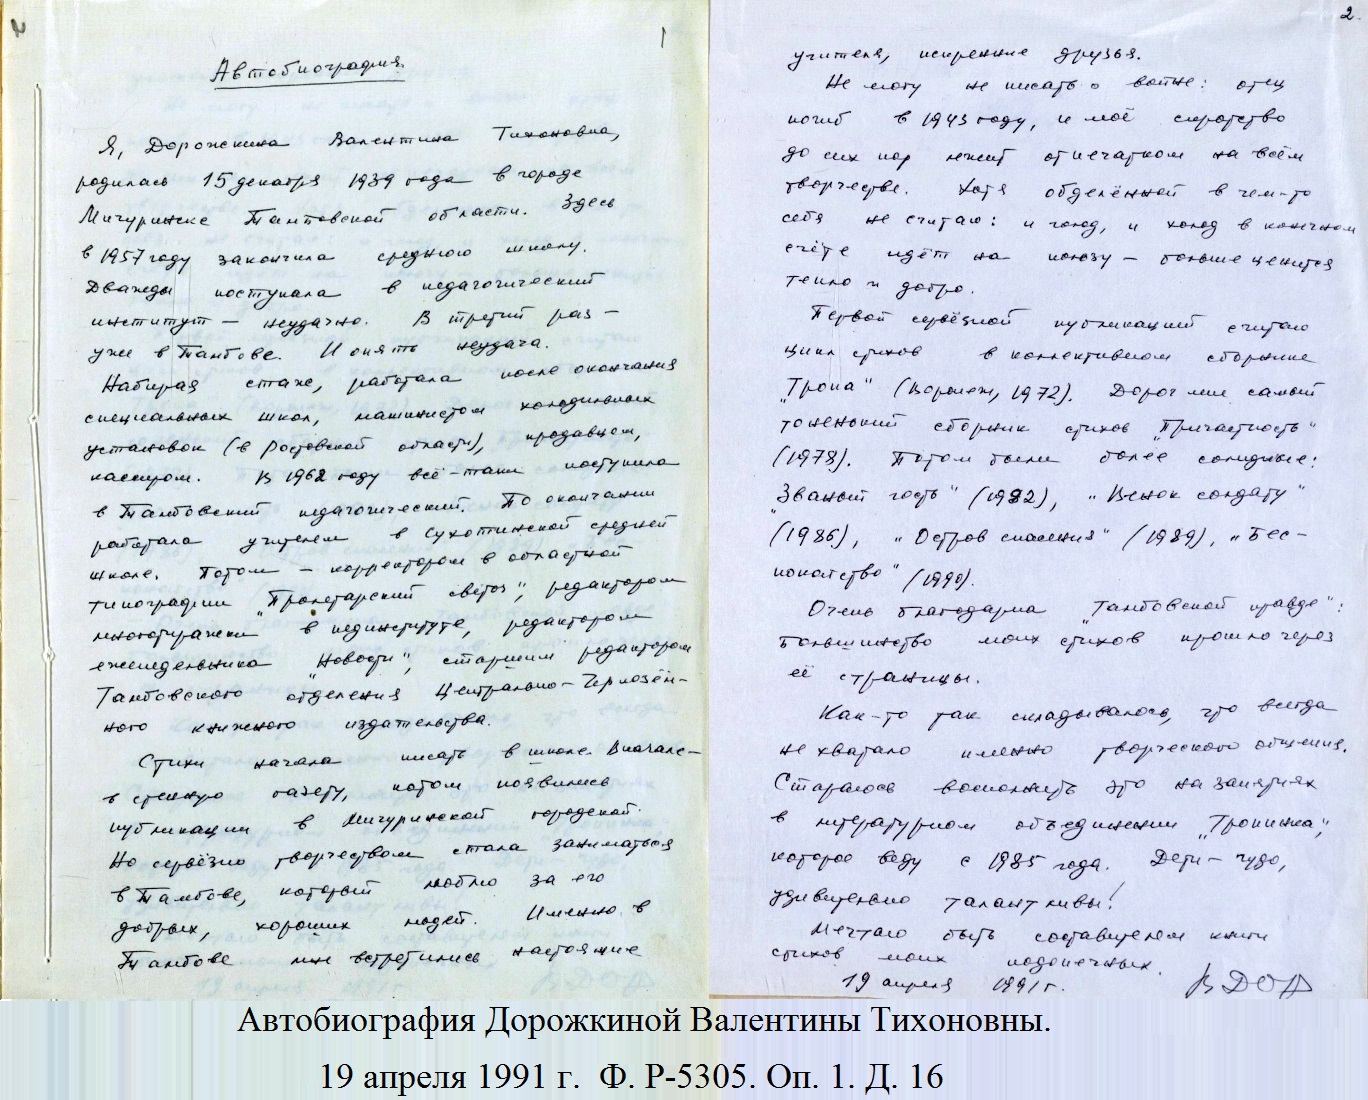 1
Автобиография
Я, Дорожкина Валентина Тихоновна,
родилась 15 декабря 1939 года в городе
Мичуринске Тамбовской области. Здесь
в 1957 году закончила среднюю школу.
Дважды поступала в педагогический
институт – неудачно. В третий раз –
уже в Тамбове. И опять неудача.
Набирая стаж, работала после окончания
специальных школ, машинистом холодильных
установок (в Ростовской области), продавцом,
кассиром. В 1962 году всё-таки поступила
в Тамбовский педагогический. По окончании
работала учителем в Сухотинской средней
школе. Потом – корректором в областной
типографии „Пролетарский светоч", редактором
многотиражки в пединституте, редактором
еженедельника „Новости", старшим редактором
Тамбовского отделения Центрально-Чернозём-
ного книжного издательства.
Стихи начала писать в школе. Вначале –
в стенную газету, потом появились
публикации в Мичуринской городской.
Но серьёзно творчеством стала заниматься
в Тамбове, который люблю за его
добрых, хороших людей. Именно в
Тамбове мне встретились настоящие
2.
учителя, искренние друзья.
Не могу не писать о войне: отец
погиб в 1943 году, и моё сиротство
до сих пор лежит отпечатком на всём
творчестве. Хотя обделённой в чем-то
себя не считаю: и голод, и холод в конечном
счёте идёт на пользу – больше ценится
тепло и добро.
Первой серьёзной публикацией считаю
цикл стихов в коллективном сборнике
„Тропа" (Воронеж, 1972). Дорог мне самый
тоненький сборник стихов „Причастность"
(1978). Потом были более солидные:
„Званый гость" (1982), „Венок солдату"
(1986), „Остров спасения" (1989), „Бес-
покойство" (1990).
Очень благодарна „Тамбовской правде":
большинство моих стихов прошло через
её страницы.
Как-то так складывалось, что всегда
не хватало именно творческого общения.
Стараюсь восполнить это на занятиях
в литературном объединении „Тропинка",
которое веду с 1985 года. Дети – чудо,
удивительно талантливы!
Мечтаю быть составителем книги
стихов моих подопечных.
19 апреля 1991 г.
Автобиография Дорожкиной Валентины Тихоновны.
19 апреля 1991 г. Ф. Р-5305. Оп. 1. Д. 16